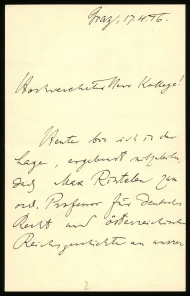 Graz, 17.4.16.
Hochverehrter Herr Kollege!
Heute bin ich in der
Lage, ergebenst mitzuteilen,
daß Max Rintelen zum
ord. Professor für deutsches
Recht und österreichische
Reichsgeschichte an unserer
2